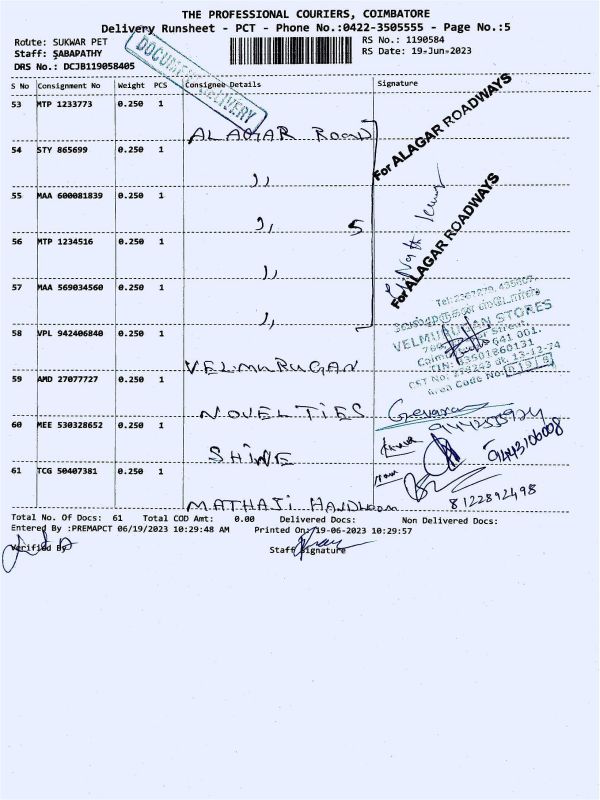 THE PROFESSIONAL COURIERS, COIMBATORE
Delivery Runsheet - PCT - Phone No.:0422-3505555 - Page No.:5
Route: SUKWAR PET
RS No.: 1190584
Staff: SABAPATHY
RS Date: 19-Jun-2023
DRS No.: DCJB119058405
DOCUMENT DELIVERY
S No Consignment No Weight PCS Consignee Details Signature
53 MTP 1233773 0.250 1
ALAGAR ROAD
For ALAGAR ROADWAYS
54 STY 865699 0.250 1
,,
55 MAA 600081839 0.250 1
,, 5
56 MTP 1234516 0.250 1
,,
For ALAGAR ROADWAYS
57 MAA 569034560 0.250 1
,,
58 VPL 942406840 0.250 1
VELMURUGAN
VELMURUGAN STORES
641 001.
59 AMD 27077727 0.250 1
NOVELTIES
60 MEE 530328652 0.250 1
SHINE
9443106008
61 TCG 50407381 0.250 1
MATHAJI Handloom
8122892498
Total No. Of Docs: 61 Total COD Amt: 0.00 Delivered Docs: Non Delivered Docs:
Entered By :PREMAPCT 06/19/2023 10:29:48 AM Printed On: 19-06-2023 10:29:57
Verified By
Staff Signature